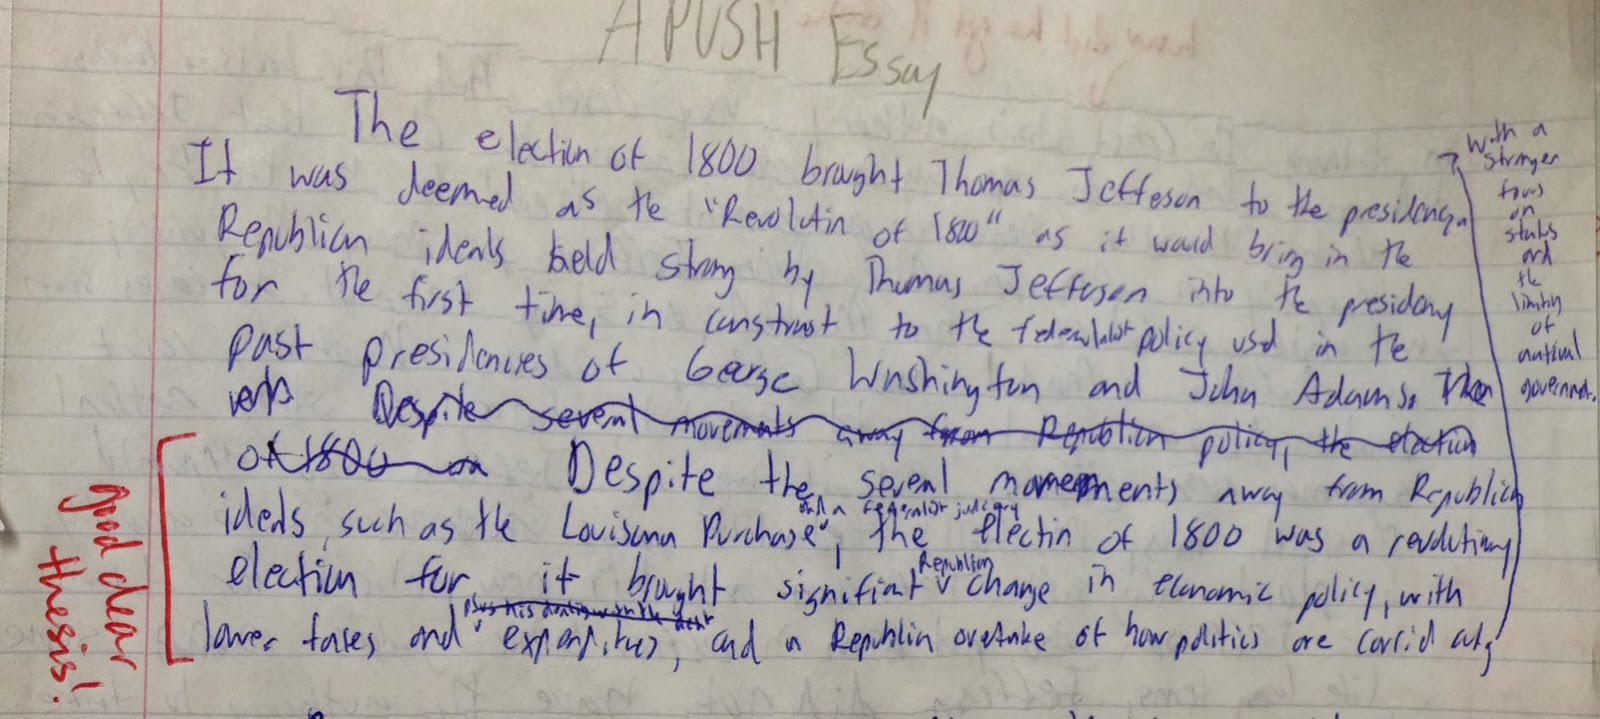 APUSH Essay
The election of 1800 brought Thomas Jeffeson to the presidency.
It was deemed as the "Revolutin of 1800" as it would bring in the
Republican ideals held strong by Thomas Jefferson into the presidency
for the first time, in constrast to the federalist policy used in the
past presidencies of George Washington and John Adams.
Despite several movements away from Republican policy, the election
of 1800
Despite the several movements away from Republican
ideals, such as the Louisana Purchase and a Federalist judiciary, the electin of 1800 was a revolutionary
election for it brought significat Republican change in economic policy, with
lower taxes and expenditures, and a Republican overtake of how politics are carried out,
with a
stronger
focus
on
states
and
the
limiting
of
national
government.
good clear
thesis!